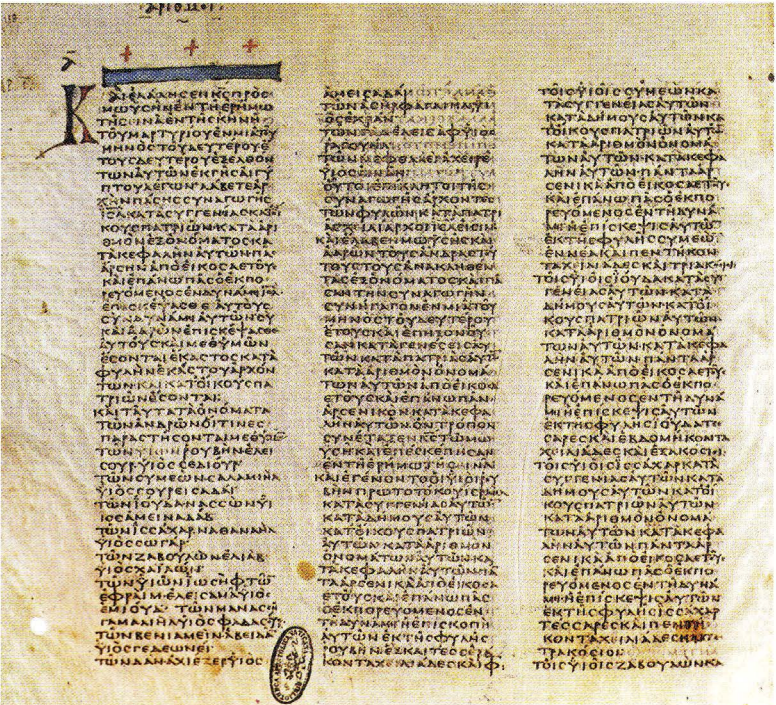 ΑΡΙΘΜΟΙ
ΚΑΙΕΛΑΛΗϹΕΝΚ̅Ϲ̅ΠΡΟϹ
ΜΩΥϹΗΝΕΝΤΗΕΡΗΜΩ
ΤΗϹΙΝΑΕΝΤΗϹΚΗΝΗ
ΤΟΥΜΑΡΤΥΡΙΟΥΕΝΜΙΑΤΟΥ
ΜΗΝΟϹΤΟΥΔΕΥΤΕΡΟΥΕ
ΤΟΥϹΔΕΥΤΕΡΟΥΕΞΕΛΘΟΝ
ΤΩΝΑΥΤΩΝΕΚΓΗϹΑΙΓΥ
ΠΤΟΥΛΕΓΩΝΛΑΒΕΤΕΑΡ
ΧΗΝΠΑϹΗϹϹΥΝΑΓΩΓΗϹ
Ι̅Ϲ̅Λ̅ΚΑΤΑϹΥΓΓΕΝΙΑϹΚΑΤΟΙ
ΚΟΥϹΠΑΤΡΙΩΝΚΑΤΑΑΡΙ
ΘΜΟΝΕΞΟΝΟΜΑΤΟϹΚΑ
ΤΑΚΕΦΑΛΗΝΑΥΤΩΝΠΑϹ
ΑΡϹΗΝΑΠΟΕΙΚΟϹΑΕΤΟΥϹ
ΚΑΙΕΠΑΝΩΠΑϹΟΕΚΠΟ
ΡΕΥΟΜΕΝΟϹΕΝΔΥΝΑΜΕΙΙ̅Ϲ̅Λ̅
ΕΠΙϹΚΕΨΑϹΘΕΑΥΤΟΥϹ
ϹΥΝΔΥΝΑΜΙΑΥΤΩΝϹΥ
ΚΑΙΑΑΡΩΝΕΠΙϹΚΕΨΑϹΘΕ
ΑΥΤΟΥϹΚΑΙΜΕΘΥΜΩΝ
ΕϹΟΝΤΑΙΕΚΑϹΤΟϹΚΑΤΑ
ΦΥΛΗΝΕΚΑϹΤΟΥΑΡΧΟΝ
ΤΩΝΚΑΤΟΙΚΟΥϹΠΑ
ΤΡΙΩΝΕϹΟΝΤΑΙ
ΚΑΙΤΑΥΤΑΤΑΟΝΟΜΑΤΑ
ΤΩΝΑΝΔΡΩΝΟΙΤΙΝΕϹ
ΠΑΡΑϹΤΗϹΟΝΤΑΙΜΕΘΥΜΩΝ
ΤΩΝΡΟΥΒΗΝΕΛΕΙ
ϹΟΥΡΥΙΟϹϹΕΔΙΟΥΡ
ΤΩΝϹΥΜΕΩΝϹΑΛΑΜΙΗΛ
ΥΙΟϹϹΟΥΡΕΙϹΑΔΑΙ
ΤΩΝΙΟΥΔΑΝΑϹϹΩΝΥΙ
ΟϹΑΜΕΙΝΑΔΑΒ
ΤΩΝΙϹϹΑΧΑΡΝΑΘΑΝΑΗΛ
ΥΙΟϹϹΩΓΑΡ
ΤΩΝΖΑΒΟΥΛΩΝΕΛΙΑΒ
ΥΙΟϹΧΑΙΛΩΝ
ΤΩΝΥΙΩΝΙΩϹΗΦΤΩΝ
ΕΦΡΑΙΜΕΛΕΙϹΑΜΑΥΙΟϹ
ΕΜΙΟΥΔΤΩΝΜΑΝΑϹϹΗ
ΓΑΜΑΛΙΗΛΥΙΟϹΦΑΔΑϹϹΟΥΡ
ΤΩΝΒΕΝΙΑΜΕΙΝΑΒΕΙΔΑΝ
ΥΙΟϹΓΕΔΕΩΝΕΙ
ΤΩΝΔΑΝΑΧΙΕΖΕΡΥΙΟϹ
ΑΜΕΙϹΑΔΑΙ
ΤΩΝΑϹΗΡΦΑΓΑΙΗΛΥΙ
ΟϹΕΧΡΑΝ
ΤΩΝΓΑΔΕΛΕΙϹΑΦΥΙΟϹ
ΡΑΓΟΥΗΛ
ΤΩΝΝΕΦΘΑΛΕΙΑΧΕΙΡΕ
ΥΙΟϹΑΙΝΑΝ
ΟΥΤΟΙΕΠΙΚΛΗΤΟΙΤΗϹ
ϹΥΝΑΓΩΓΗϹΑΡΧΟΝΤΕϹ
ΤΩΝΦΥΛΩΝΚΑΤΑΠΑΤΡΙ
ΑϹΧΕΙΛΙΑΡΧΟΙΙ̅Ϲ̅Λ̅ΕΙϹΙΝ
ΚΑΙΕΛΑΒΕΝΜΩΥϹΗϹΚΑΙ
ΑΑΡΩΝΤΟΥϹΑΝΔΡΑϹΤΟΥ
ΤΟΥϹΤΟΥϹΑΝΑΚΛΗΘΕΝ
ΤΑϹΕΞΟΝΟΜΑΤΟϹΚΑΙΠΑ
ϹΑΝΤΗΝϹΥΝΑΓΩΓΗΝ
ϹΥΝΗΓΑΓΟΝΕΝΜΙΑΤΟΥ
ΜΗΝΟϹΤΟΥΔΕΥΤΕΡΟΥ
ΕΤΟΥϹΚΑΙΕΠΗΞΟΝΟΥ
ϹΑΝΚΑΤΑΓΕΝΕϹΕΙϹΑΥ
ΤΩΝΚΑΤΑΠΑΤΡΙΑϹΑΥΤΩΝ
ΚΑΤΑΑΡΙΘΜΟΝΟΝΟΜΑ
ΤΩΝΑΥΤΩΝΑΠΟΕΙΚΟϹΑ
ΕΤΟΥϹΚΑΙΕΠΑΝΩΠΑΝ
ΑΡϹΕΝΙΚΟΝΚΑΤΑΚΕΦΑ
ΛΗΝΑΥΤΩΝΟΝΤΡΟΠΟΝ
ϹΥΝΕΤΑΞΕΝΚ̅Ϲ̅ΤΩΜΩ
ΥϹΗΚΑΙΕΠΕϹΚΕΠΗϹΑΝ
ΕΝΤΗΕΡΗΜΩΤΗϹΙΝΑ
ΚΑΙΕΓΕΝΟΝΤΟΟΙΥΙΟΙΡΟΥ
ΒΗΝΠΡΩΤΟΤΟΚΟΥΙ̅Ϲ̅Λ̅
ΚΑΤΑϹΥΓΓΕΝΙΑϹΑΥΤΩΝ
ΚΑΤΑΔΗΜΟΥϹΑΥΤΩΝ
ΚΑΤΟΙΚΟΥϹΠΑΤΡΙΩΝ
ΑΥΤΩΝΚΑΤΑΑΡΙΘΜΟΝ
ΟΝΟΜΑΤΩΝΑΥΤΩΝΚΑ
ΤΑΚΕΦΑΛΗΝΑΥΤΩΝΠΑΝ
ΤΑΑΡϹΕΝΙΚΑΑΠΟΕΙΚΟϹΑ
ΕΤΟΥϹΚΑΙΕΠΑΝΩΠΑϹ
ΟΕΚΠΟΡΕΥΟΜΕΝΟϹΕΝ
ΤΗΔΥΝΑΜΙΗΕΠΙϹΚΟΠΗ
ΑΥΤΩΝΕΚΤΗϹΦΥΛΗϹ
ΡΟΥΒΗΝΕΞΚΑΙΤΕϹϹΕΡΑ
ΚΟΝΤΑΧΕΙΛΙΑΔΕϹΚΑΙΦ
ΤΟΙϹΥΙΟΙϹϹΥΜΕΩΝΚΑ
ΤΑϹΥΓΓΕΝΕΙΑϹΑΥΤΩΝ
ΚΑΤΑΔΗΜΟΥϹΑΥΤΩΝΚΑ
ΤΟΙΚΟΥϹΠΑΤΡΙΩΝΑΥΤΩΝ
ΚΑΤΑΑΡΙΘΜΟΝΟΝΟΜΑ
ΤΩΝΑΥΤΩΝΚΑΤΑΚΕΦΑ
ΛΗΝΑΥΤΩΝΠΑΝΤΑΑΡ
ϹΕΝΙΚΑΑΠΟΕΙΚΟϹΑΕΤΟΥϹ
ΚΑΙΕΠΑΝΩΠΑϹΟΕΚΠΟ
ΡΕΥΟΜΕΝΟϹΕΝΤΗΔΥΝΑ
ΜΙΗΕΠΙϹΚΕΨΙϹΑΥΤΩΝ
ΕΚΤΗϹΦΥΛΗϹϹΥΜΕΩΝ
ΕΝΝΕΑΚΑΙΠΕΝΤΗΚΟΝ
ΤΑΧΕΙΛΙΑΔΕϹΚΑΙΤΡΙΑΚΟϹΙΟΙ
ΤΟΙϹΥΙΟΙϹΙΟΥΔΑΚΑΤΑϹΥΓ
ΓΕΝΕΙΑϹΑΥΤΩΝΚΑΤΑ
ΔΗΜΟΥϹΑΥΤΩΝΚΑΤΟΙ
ΚΟΥϹΠΑΤΡΙΩΝΑΥΤΩΝ
ΚΑΤΑΑΡΙΘΜΟΝΟΝΟΜΑ
ΤΩΝΑΥΤΩΝΚΑΤΑΚΕΦΑ
ΛΗΝΑΥΤΩΝΠΑΝΤΑΑΡ
ϹΕΝΙΚΑΑΠΟΕΙΚΟϹΑΕΤΟΥϹ
ΚΑΙΕΠΑΝΩΠΑϹΟΕΚΠΟ
ΡΕΥΟΜΕΝΟϹΕΝΤΗΔΥΝΑ
ΜΙΗΕΠΙϹΚΕΨΙϹΑΥΤΩΝ
ΕΚΤΗϹΦΥΛΗϹΙΟΥΔΑΤΕϹ
ϹΑΡΕϹΚΑΙΕΒΔΟΜΗΚΟΝΤΑ
ΧΕΙΛΙΑΔΕϹΚΑΙΕΞΑΚΟϹΙΟΙ
ΤΟΙϹΥΙΟΙϹΙϹϹΑΧΑΡΚΑΤΑ
ϹΥΓΓΕΝΙΑϹΑΥΤΩΝΚΑΤΑ
ΔΗΜΟΥϹΑΥΤΩΝΚΑΤΟΙ
ΚΟΥϹΠΑΤΡΙΩΝΑΥΤΩΝ
ΚΑΤΑΑΡΙΘΜΟΝΟΝΟΜΑ
ΤΩΝΑΥΤΩΝΚΑΤΑΚΕΦΑ
ΛΗΝΑΥΤΩΝΠΑΝΤΑΑΡ
ϹΕΝΙΚΑΑΠΟΕΙΚΟϹΑΕΤΟΥϹ
ΚΑΙΕΠΑΝΩΠΑϹΟΕΚΠΟ
ΡΕΥΟΜΕΝΟϹΕΝΤΗΔΥΝΑ
ΜΙΗΕΠΙϹΚΕΨΙϹΑΥΤΩΝ
ΕΚΤΗϹΦΥΛΗϹΙϹϹΑΧΑΡ
ΤΕϹϹΑΡΕϹΚΑΙΠΕΝΤΗ
ΚΟΝΤΑΧΕΙΛΙΑΔΕϹΚΑΙΤΕ
ΤΡΑΚΟϹΙΟΙ
ΤΟΙϹΥΙΟΙϹΖΑΒΟΥΛΩΝΚΑ